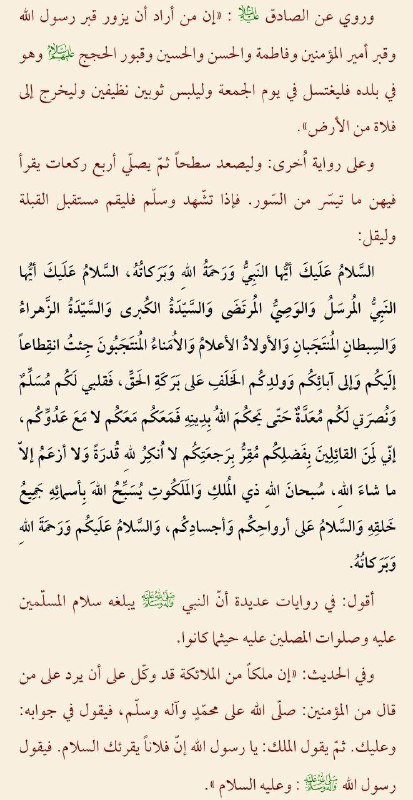 وروي عن الصادق عليه السلام : «إن من أراد أن يزور قبر رسول الله
وقبر أمير المؤمنين وفاطمة والحسن والحسين وقبور الحجج عليهم السلام وهو
في بلده فليغتسل في يوم الجمعة وليلبس ثوبين نظيفين وليخرج إلى
فلاة من الأرض».
وعلى رواية اُخرى: وليصعد سطحاً ثمّ يصلّي أربع ركعات يقرأ
فيهن ما تيسّر من السّور. فإذا تشّهد وسلّم فليقم مستقبل القبلة
وليقل:
السَّلامُ عَلَيكَ أيُّها النَبيُّ وَرَحمَةُ اللهِ وَبَرَكاتُهُ، السَّلامُ عَلَيكَ أيُّها
النَبيُّ المُرسَلُ وَالوَصِيُّ المُرتَضَى وَالسَّيّدَةُ الكُبرى وَالسَّيّدَةُ الزَّهراءُ
وَالسِبطانِ المُنتَجَبانِ وَالأولادُ الأعلامُ وَالأُمَناءُ المُنتَجَبُونَ جِئتُ انقِطاعاً
إلَيكُم وَإلى آبائِكُم وَوَلدِكُم الخَلَفِ عَلى بَرَكَةِ الحَقِّ، فَقَلبي لَكُم مُسَلِّمٌ
وَنُصرَتي لَكُم مُعَدَّةٌ حَتّى يَحكُمَ اللهُ بِدِينِهِ فَمَعَكُم مَعَكُم لا مَعَ عَدُوِّكُم،
إنّي لَمِنَ القائِلينَ بِفَضلِكُم مُقِرٌّ بِرَجعَتِكُم لا اُنكِرُ لله قُدرَةً وَلا أزعَمُ إلاّ
ما شاءَ اللهِ، سُبحانَ اللهِ ذي المُلكِ وَالمَلَكُوتِ يُسَبِّحُ اللهَ بِأسمائِهِ جَمِيعُ
خَلقِهِ وَالسَّلامُ عَلى أرواحِكُم وَأجسادِكُم، وَالسَّلامُ عَلَيكُم وَرَحمَةَ اللهِ
وَبَرَكاتُهُ.
أقول: في روايات عديدة أنّ النبي صلى الله عليه وآله وسلم يبلغه سلام المسلّمين
عليه وصلوات المصلين عليه حيثما كانوا.
وفي الحديث: «إن ملكاً من الملائكة قد وكّل على أن يرد على من
قال من المؤمنين: صلّى الله على محمّدٍ وآله وسلّم، فيقول في جوابه:
وعليك. ثمّ يقول الملك: يا رسول الله إنّ فلاناً يقرئك السلام. فيقول
رسول الله صلى الله عليه وآله وسلم : وعليه السلام ».